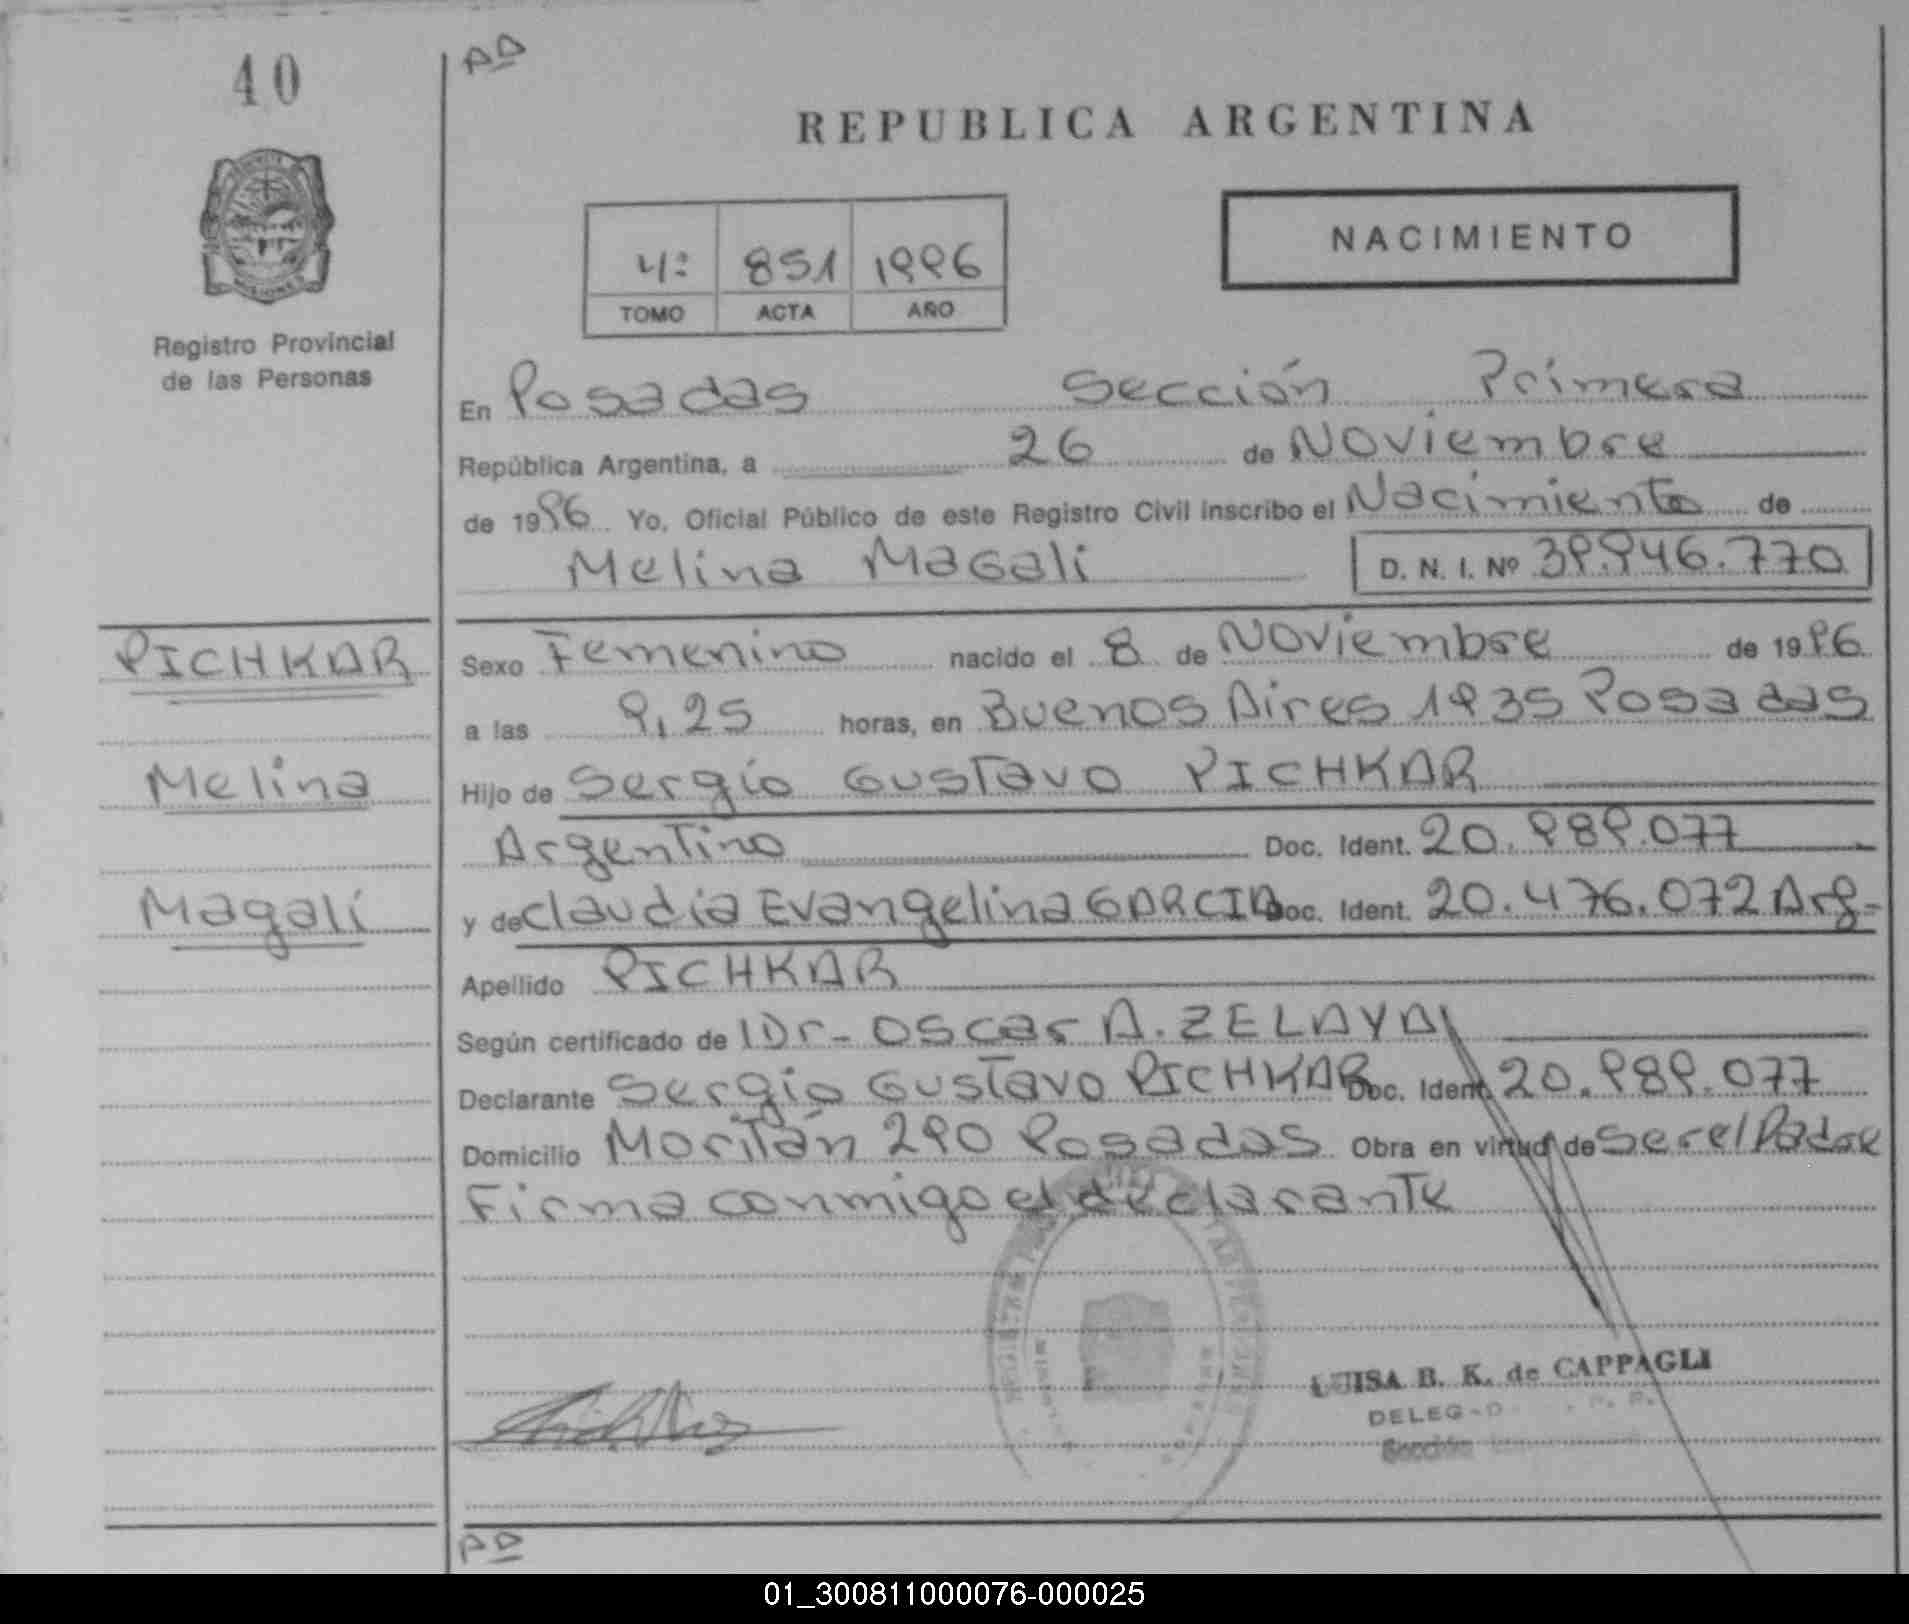 40
Registro Provincial
de las Personas
PICHKAR
Melina
Magalí
REPUBLICA ARGENTINA
NACIMIENTO
4º 851 1996
TOMO ACTA AÑO
En Posadas Sección Primera
República Argentina, a 26 de Noviembre
de 1996 Yo, Oficial Público de este Registro Civil inscribo el Nacimiento de
Melina Magali D. N. I. Nº 39.946.770
Sexo Femenino nacido el 8 de Noviembre de 1996
a las 9,25 horas, en Buenos Aires 1935 Posadas
Hijo de Sergio Gustavo PICHKAR
Argentino Doc. Ident. 20.989.077
y de Claudia Evangelina GARCIA Doc. Ident. 20.476.072 Arg-
Apellido PICHKAR
Según certificado de Dr- Oscar A. ZELAYA
Declarante Sergio Gustavo PICHKAR Doc. Ident. 20.989.077
Domicilio Moritán 290 Posadas Obra en virtud de Ser el Padre
Firma conmigo el declarante
LUISA B. K. de CAPPAGLI
01_300811000076-000025